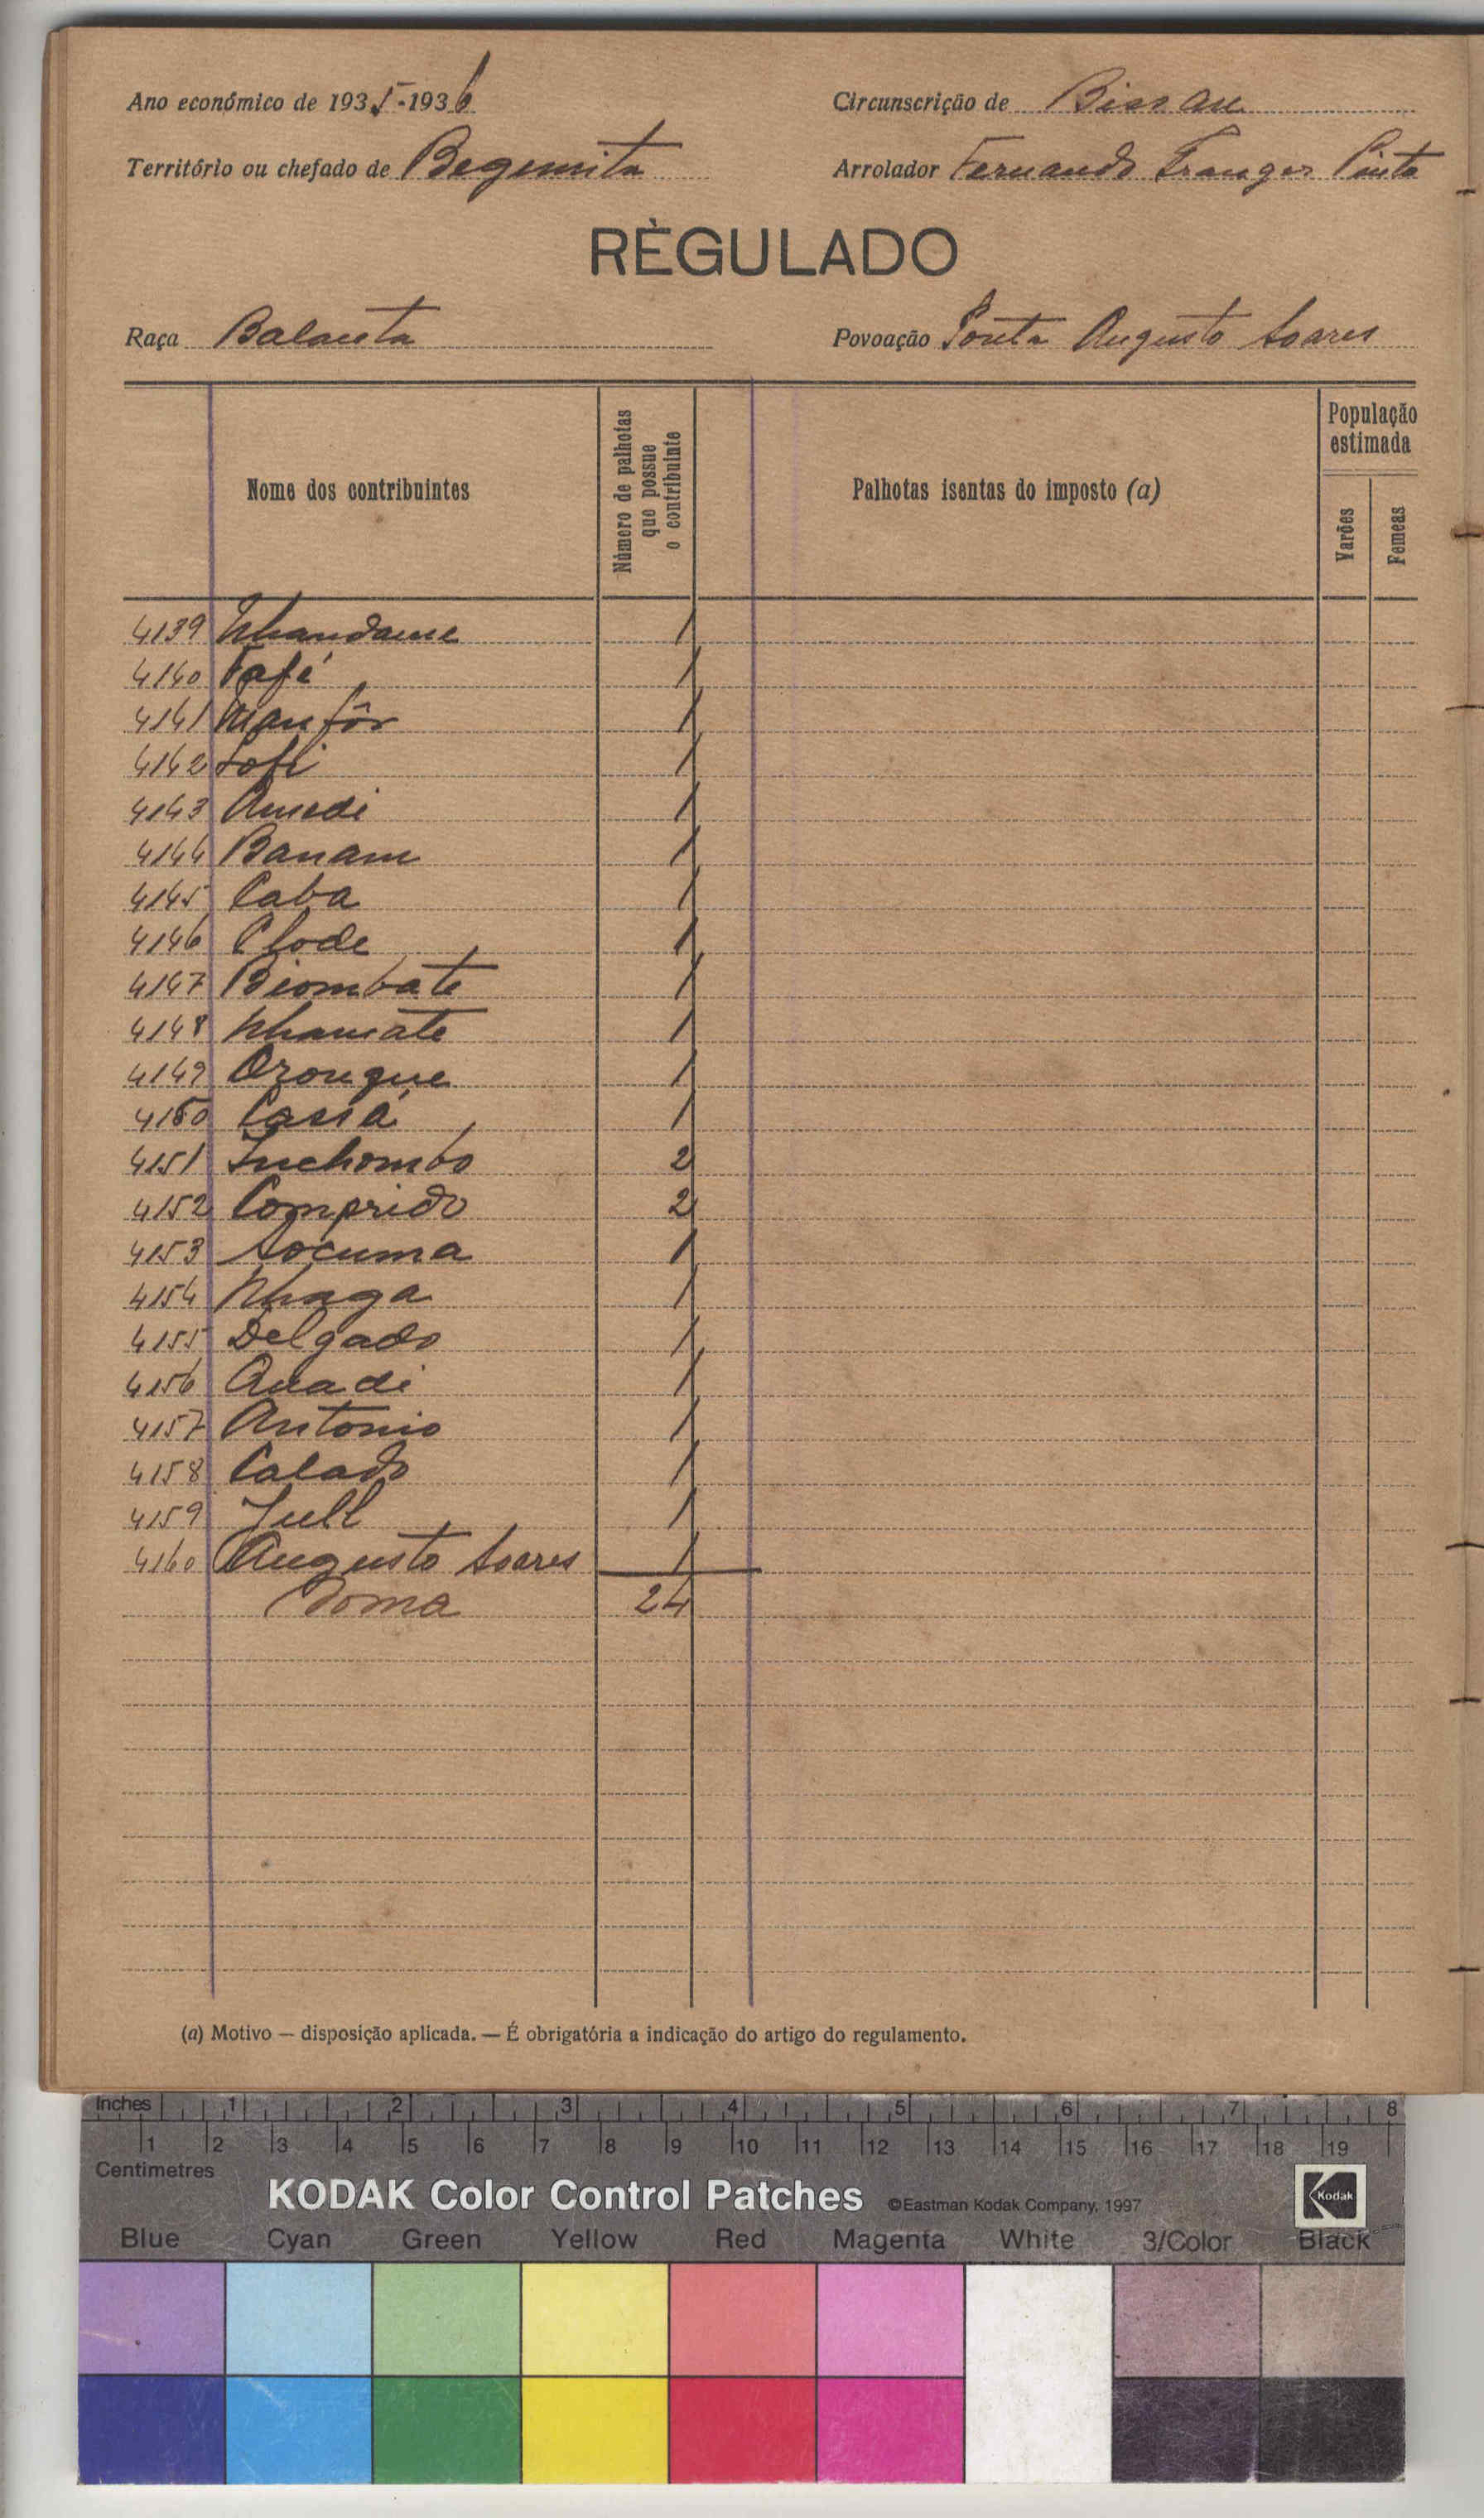 Ano económico de 1935-1936
Circunscrição de Bissau
Território ou chefado de Begemita
Arrolador Fernando Pinto
RÈGULADO
Raça Balanta
Povoação Ponta Augusto Soares
Nome dos contribuintes
Número de palhotas que possue o contribuinte
Palhotas isentas do imposto (a)
População estimada
Varões
Femeas
4139 Nhandame 1
4140 Fafé 1
4141 Manfôr 1
4142 1
4143 Amedi 1
4144 Banam 1
4145 Caba 1
4146 Clode 1
4147 Biombate 1
4148 Nhamate 1
4149 Oronque 1
4150 Cassá 1
4151 Inchombo 2
4152 Comprido 2
4153 Socuma 1
4154 Nhaga 1
4155 Delgado 1
4156 1
4157 Antonio 1
4158 Calado 1
4159 1
4160 Augusto Soares 1
Soma 24
(a) Motivo — disposição aplicada. — É obrigatória a indicação do artigo do regulamento.
Inches 1 2 3 4 5 6 7 8
1 2 3 4 5 6 7 8 9 10 11 12 13 14 15 16 17 18 19
Centimetres
KODAK Color Control Patches ©Eastman Kodak Company, 1997 Kodak
Blue Cyan Green Yellow Red Magenta White 3/Color Black